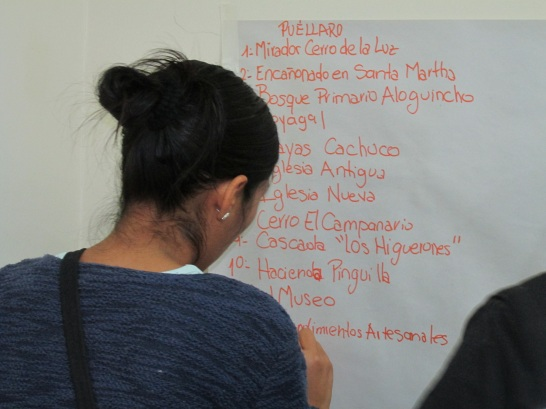 PUÉLLARO
1- Mirador Cerro de la Luz
2- Encañonado en Santa Martha
Bosque Primario Aloguincho
Cachuco
Iglesia Antigua
Iglesia Nueva
Cerro El Campanario
Cascada "Los Higuerones"
10- Hacienda Pinguilla
Museo
Artesanales